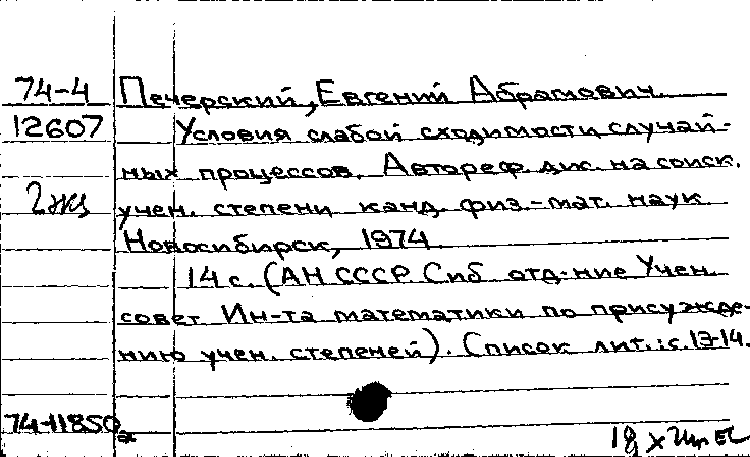 74-4 Печерский, Евгений Абрамович.
12607 Условия слабой сходимости случай-
ных процессов. Автореф. дис. на соиск.
2 экз учен. степени канд. физ.-мат. наук
Новосибирск, 1974.
14 с. (АН СССР. Сиб отд-ние Учен.
совет Ин-та математики по присужде-
нию учен. степеней). Список лит.: с. 13-14.
74-11850
18